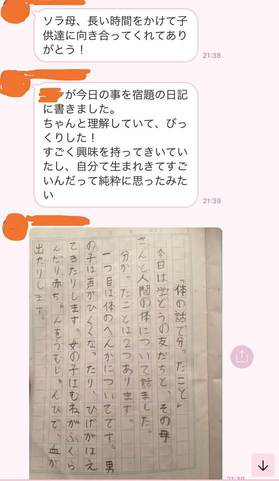 ソラ母、長い時間をかけて子
供達に向き合ってくれてあり
がとう！
21:38
が今日の事を宿題の日記
に書きました。
ちゃんと理解していて、びっ
くりした！
すごく興味を持ってきいてい
たし、自分て生まれきてすご
いんだって純粋に思ったみた
い
21:39
「体の話で分ったこと」
今日は学どうの友だちと、その母
さんと人間の体について話ました。
分かったことは2つあります。
一つ目は体のへんかについてです。男
の子は声がひくくなったり、ひげがはえ
てきたりします。女の子はむねがふくら
んだり赤ちゃんをうむじゅんびで、血が
出たりします。